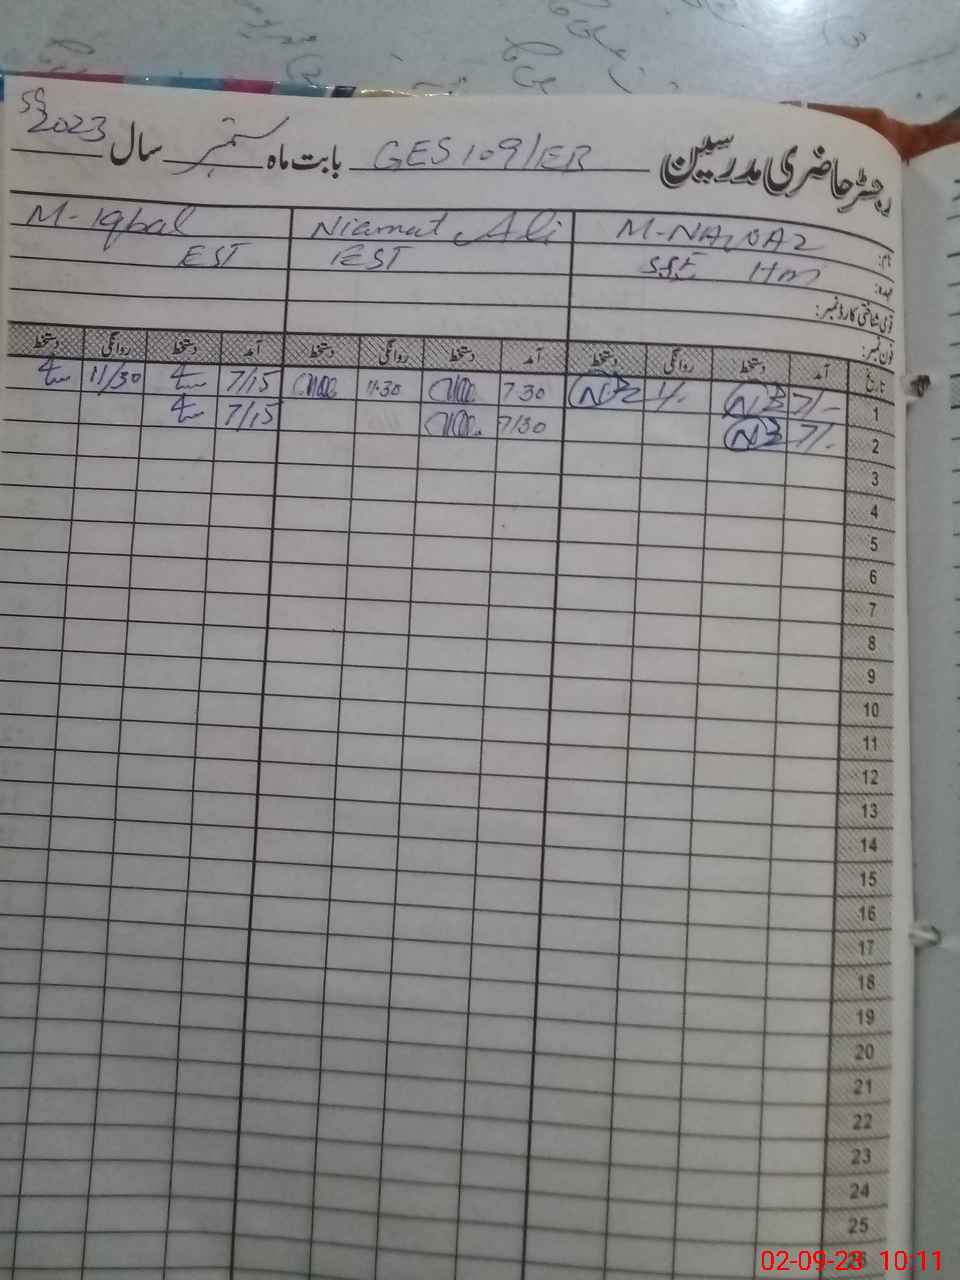 رجسٹر حاضری مدرسین GES 109/EB بابت ماہ ستمبر سال 2023
نام: M-NAWAZ Niamat Ali M-Iqbal
عہدہ: SSE HM EST EST
قومی شناختی کارڈ نمبر:
فون نمبر:
تاریخ آمد دستخط روانگی دستخط آمد دستخط روانگی دستخط آمد دستخط روانگی دستخط
1 7/- 1/- 7 30 11-30 7/15 11/30
2 7/- 7/30 7/15
3
4
5
6
7
8
9
10
11
12
13
14
15
16
17
18
19
20
21
22
23
24
25
26
02-09-23 10:11